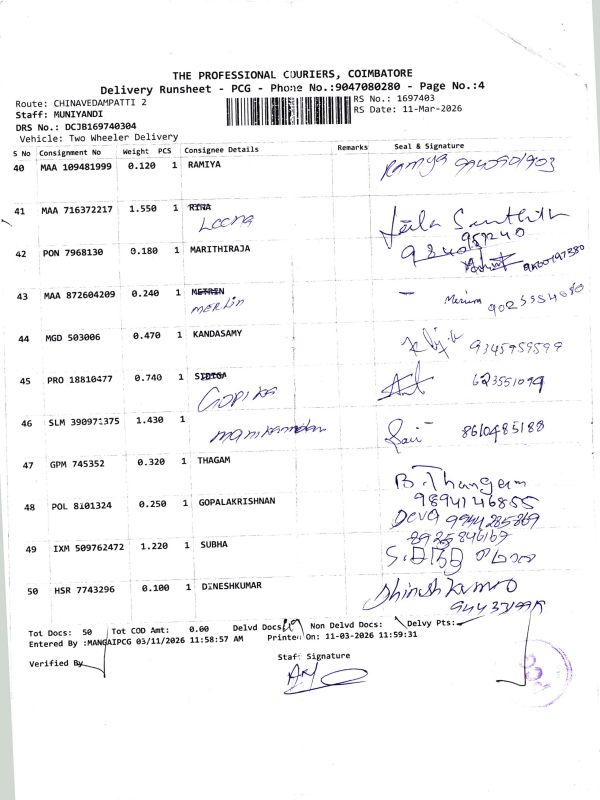 THE PROFESSIONAL COURIERS, COIMBATORE
Delivery Runsheet - PCG - Phone No.:9047080280 - Page No.:4
Route: CHINAVEDAMPATTI 2
Staff: MUNIYANDI
DRS No.: DCJB169740304
Vehicle: Two Wheeler Delivery
RS No.: 1697403
RS Date: 11-Mar-2026
S No Consignment No Weight PCS Consignee Details Remarks Seal & Signature
40 MAA 109481999 0.120 1 RAMIYA Ramya
41 MAA 716372217 1.550 1 RINA
Leena
Leela
42 PON 7968130 0.180 1 MARITHIRAJA
9600197380
43 MAA 872604209 0.240 1 METREN
merlin
44 MGD 503006 0.470 1 KANDASAMY
9345959599
45 PRO 18810477 0.740 1
Gopika
46 SLM 390971375 1.430 1
manikandan 8610485188
47 GPM 745352 0.320 1 THAGAM
B. Thangam
9894146855
48 POL 8101324 0.250 1 GOPALAKRISHNAN
Deva 9944285869
49 IXM 509762472 1.220 1 SUBHA
8925846169
50 HSR 7743296 0.100 1 DINESHKUMAR
Tot Docs: 50 Tot COD Amt: 0.00 Delvd Docs: Non Delvd Docs: Delvy Pts:
Entered By :MANGAIPCG 03/11/2026 11:58:57 AM Printed On: 11-03-2026 11:59:31
Verified By
Staff Signature